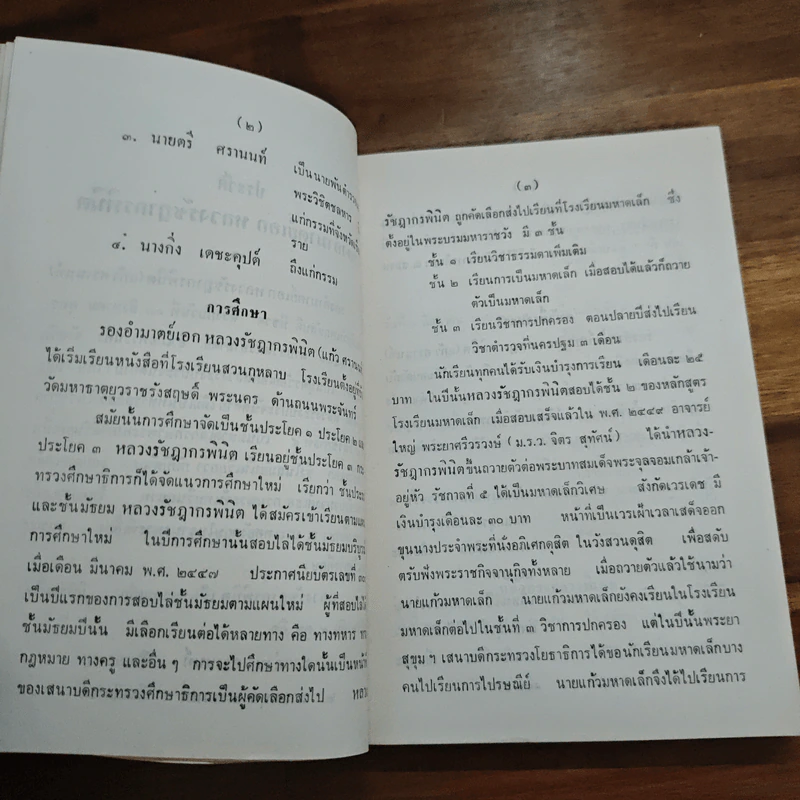 (๒)
๓. นายตรี ศรานนท์ เป็นนายพันตำรวจ
พระวิชิตชลหาร
แก่กรรมที่จังหวัด
ราย
๔. นางกิ่ง เตชะคุปต์ ถึงแก่กรรม
การศึกษา
รองอำมาตย์เอก หลวงรัชฎากรพินิต (แก้ว ศรานนท์
ได้เริ่มเรียนหนังสือที่โรงเรียนสวนกุหลาบ โรงเรียนตั้งอยู่ที่
วัดมหาธาตุยุวราชรังสฤษดิ์ พระนคร ด้านถนนพระจันทร์
สมัยนั้นการศึกษาจัดเป็นชั้นประโยค ๑ ประโยค ๒ และ
ประโยค ๓ หลวงรัชฎากรพินิต เรียนอยู่ชั้นประโยค ๑
ทรวงศึกษาธิการก็ได้จัดแนวการศึกษาใหม่ เรียกว่า ชั้นประถม
และชั้นมัธยม หลวงรัชฎากรพินิต ได้สมัครเข้าเรียนตามแผน
การศึกษาใหม่ ในปีการศึกษานั้นสอบไล่ได้ชั้นมัธยมบริบูรณ์
เมื่อเดือน มีนาคม พ.ศ. ๒๔๔๗ ประกาศนียบัตรเลขที่
เป็นปีแรกของการสอบไล่ชั้นมัธยมตามแผนใหม่ ผู้ที่สอบไล่ได้
ชั้นมัธยมปีนั้น มีเลือกเรียนต่อได้หลายทาง คือ ทางทหาร
กฎหมาย ทางครู และอื่น ๆ การจะไปศึกษาทางใดนั้นเป็นหน้าที่
ของเสนาบดีกระทรวงศึกษาธิการเป็นผู้คัดเลือกส่งไป หลวง
(๓)
รัชฎากรพินิต ถูกคัดเลือกส่งไปเรียนที่โรงเรียนมหาดเล็ก ซึ่ง
ตั้งอยู่ในพระบรมมหาราชวัง มี ๓ ชั้น
ชั้น ๑ เรียนวิชาธรรมดาเพิ่มเติม
ชั้น ๒ เรียนการเป็นมหาดเล็ก เมื่อสอบได้แล้วก็ถวาย
ตัวเป็นมหาดเล็ก
ชั้น ๓ เรียนวิชาการปกครอง ตอนปลายปีส่งไปเรียน
วิชาตำรวจที่นครปฐม ๓ เดือน
นักเรียนทุกคนได้รับเงินบำรุงการเรียน เดือนละ ๒๕
บาท ในปีนั้นหลวงรัชฎากรพินิตสอบได้ชั้น ๒ ของหลักสูตร
โรงเรียนมหาดเล็ก เมื่อสอบเสร็จแล้วใน พ.ศ. ๒๔๔๙ อาจารย์
ใหญ่ พระยาศรีวรวงษ์ (ม.ร.ว. จิตร สุทัศน์) ได้นำหลวง-
รัชฎากรพินิตขึ้นถวายตัวต่อพระบาทสมเด็จพระจุลจอมเกล้าเจ้า-
อยู่หัว รัชกาลที่ ๕ ได้เป็นมหาดเล็กวิเศษ สังกัดเวรเดช มี
เงินบำรุงเดือนละ ๓๐ บาท หน้าที่เป็นเวรเฝ้าเวลาเสด็จออก
ขุนนางประจำพระที่นั่งอภิเศกดุสิต ในวังสวนดุสิต เพื่อสดับ
ตรับฟังพระราชกิจจานุกิจทั้งหลาย เมื่อถวายตัวแล้วใช้นามว่า
นายแก้วมหาดเล็ก นายแก้วมหาดเล็กยังคงเรียนในโรงเรียน
มหาดเล็กต่อไปในชั้นที่ ๓ วิชาการปกครอง แต่ในปีนั้นพระยา
สุขุม ฯ เสนาบดีกระทรวงโยธาธิการได้ขอนักเรียนมหาดเล็กบาง
คนไปเรียนการไปรษณีย์ นายแก้วมหาดเล็กจึงได้ไปเรียนการ